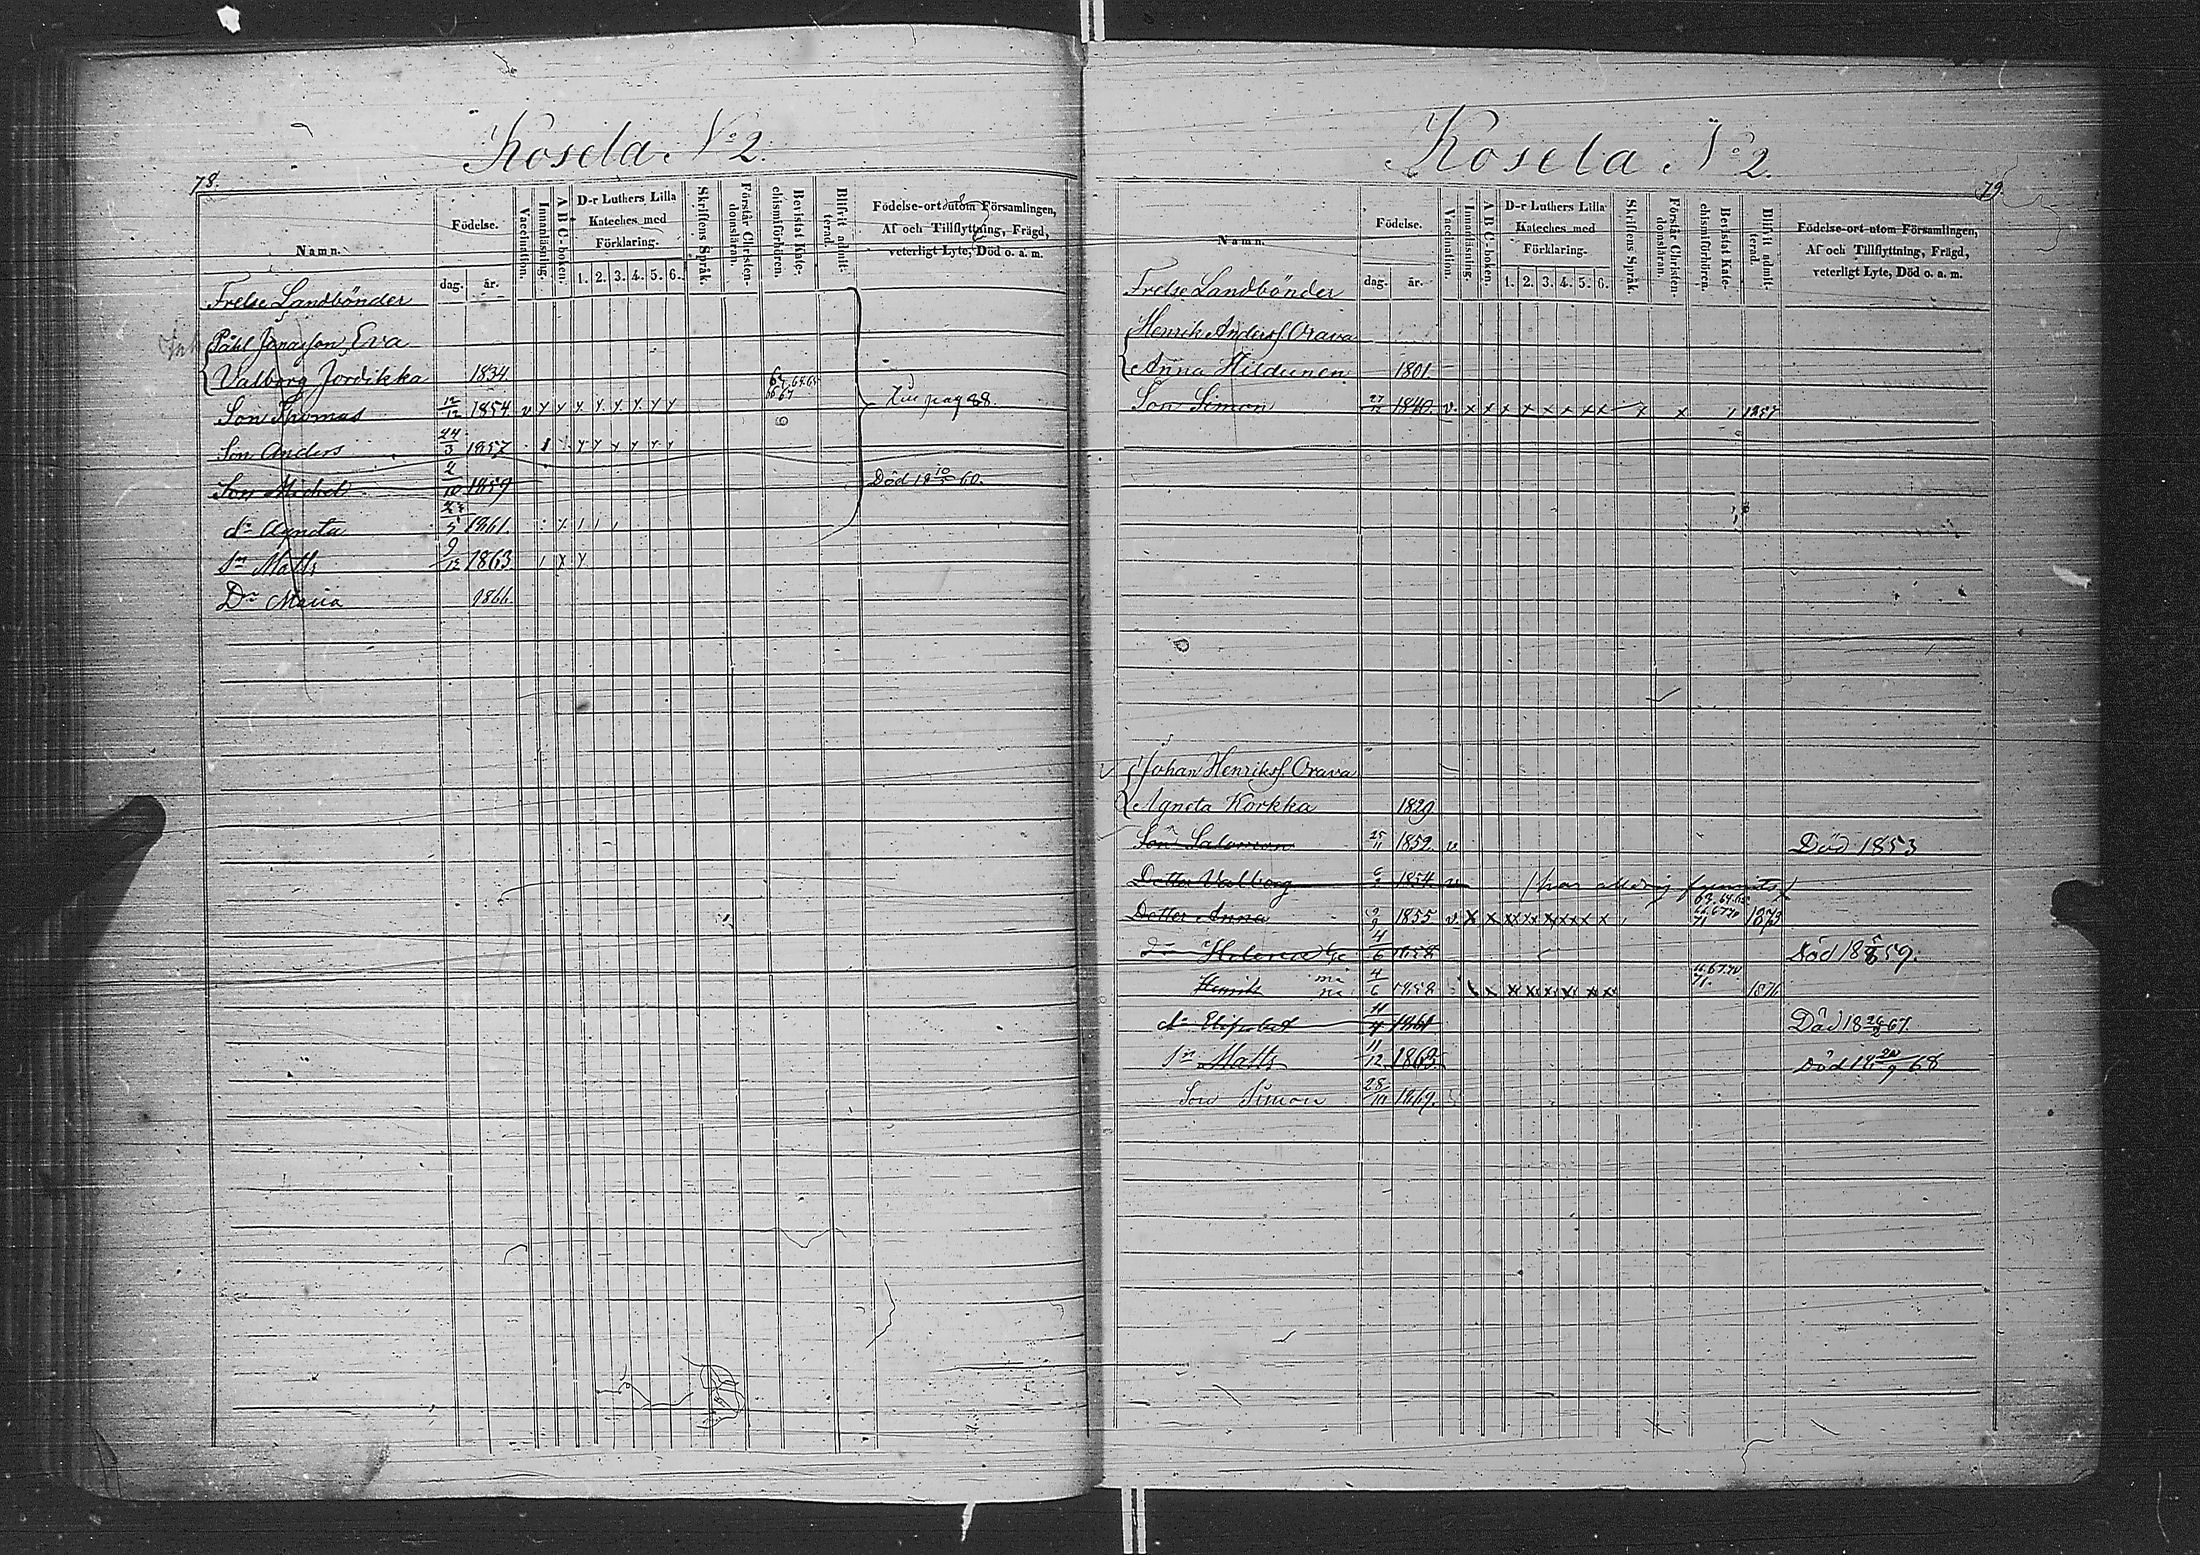 Kosela No 2.
78.
Namn.
Födelse.
dag.
år.
Vaccination.
Innanläsning.
A B C-boken.
D-r Luthers Lilla
Kateches med
Förklaring.
1. 2. 3. 4. 5. 6.
Skriftens Språk.
Förstår Christen-
domsläran.
Bevistat Kate-
chismiförhören.
Blifvit admit-
terad.
Födelse-ort utom Församlingen,
Af och Tillflyttning, Frägd,
veterligt Lyte, Död o. a. m.
Frelse Landbönder
Påhl Jonasson, Eva
Valborg Jordikka 1834.
Son Thomas 12/12 1854 v y y y y y y y y
pag 88.
Son Anders 24/3 1857 y y y y y y
Son Michel 2/10 1859 Död 18 10/5 60.
dr Agneta 1861.
sn Matts 9/12 1863 x y
Dr Maria 1866
Kosela No 2.
79.
Namn.
Födelse.
dag.
år.
Vaccination.
Innanläsning.
A B C-boken.
D-r Luthers Lilla
Kateches med
Förklaring.
1. 2. 3. 4. 5. 6.
Skriftens Språk.
Förstår Christen-
domsläran.
Bevistat Kate-
chismiförhören.
Blifvit admit-
terad.
Födelse-ort utom Församlingen,
Af och Tillflyttning, Frägd,
veterligt Lyte, Död o. a. m.
Frelse Landbönder
Henrik Anderss. Orava
Anna Hildunen 1801.
Son Simon 27/12 1840. v. x x x x x x x x x x 1857
Johan Henrikss. Orava
Agneta Korkka 1829.
Son Salomon 25/11 1852. v Död 1853
Dotter Valborg 1854. v (har aldrig funnits)
Dotter Anna 1855 v x x x x x x x x x 1873
Helena 4/6 1858 Död
Henrik 4/6 1858 x x x x x x x x 1876
dr Elisabet 1861 Död
sn Matts 11/12 1863 Död 68
Son Simon 28/10 1869.